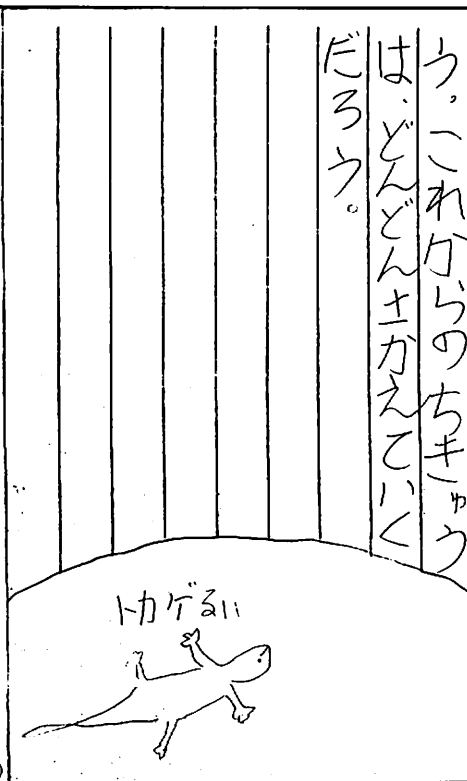 う。これからのちきゅう
は、どんどんさかえていく
だろう。
トカゲるい